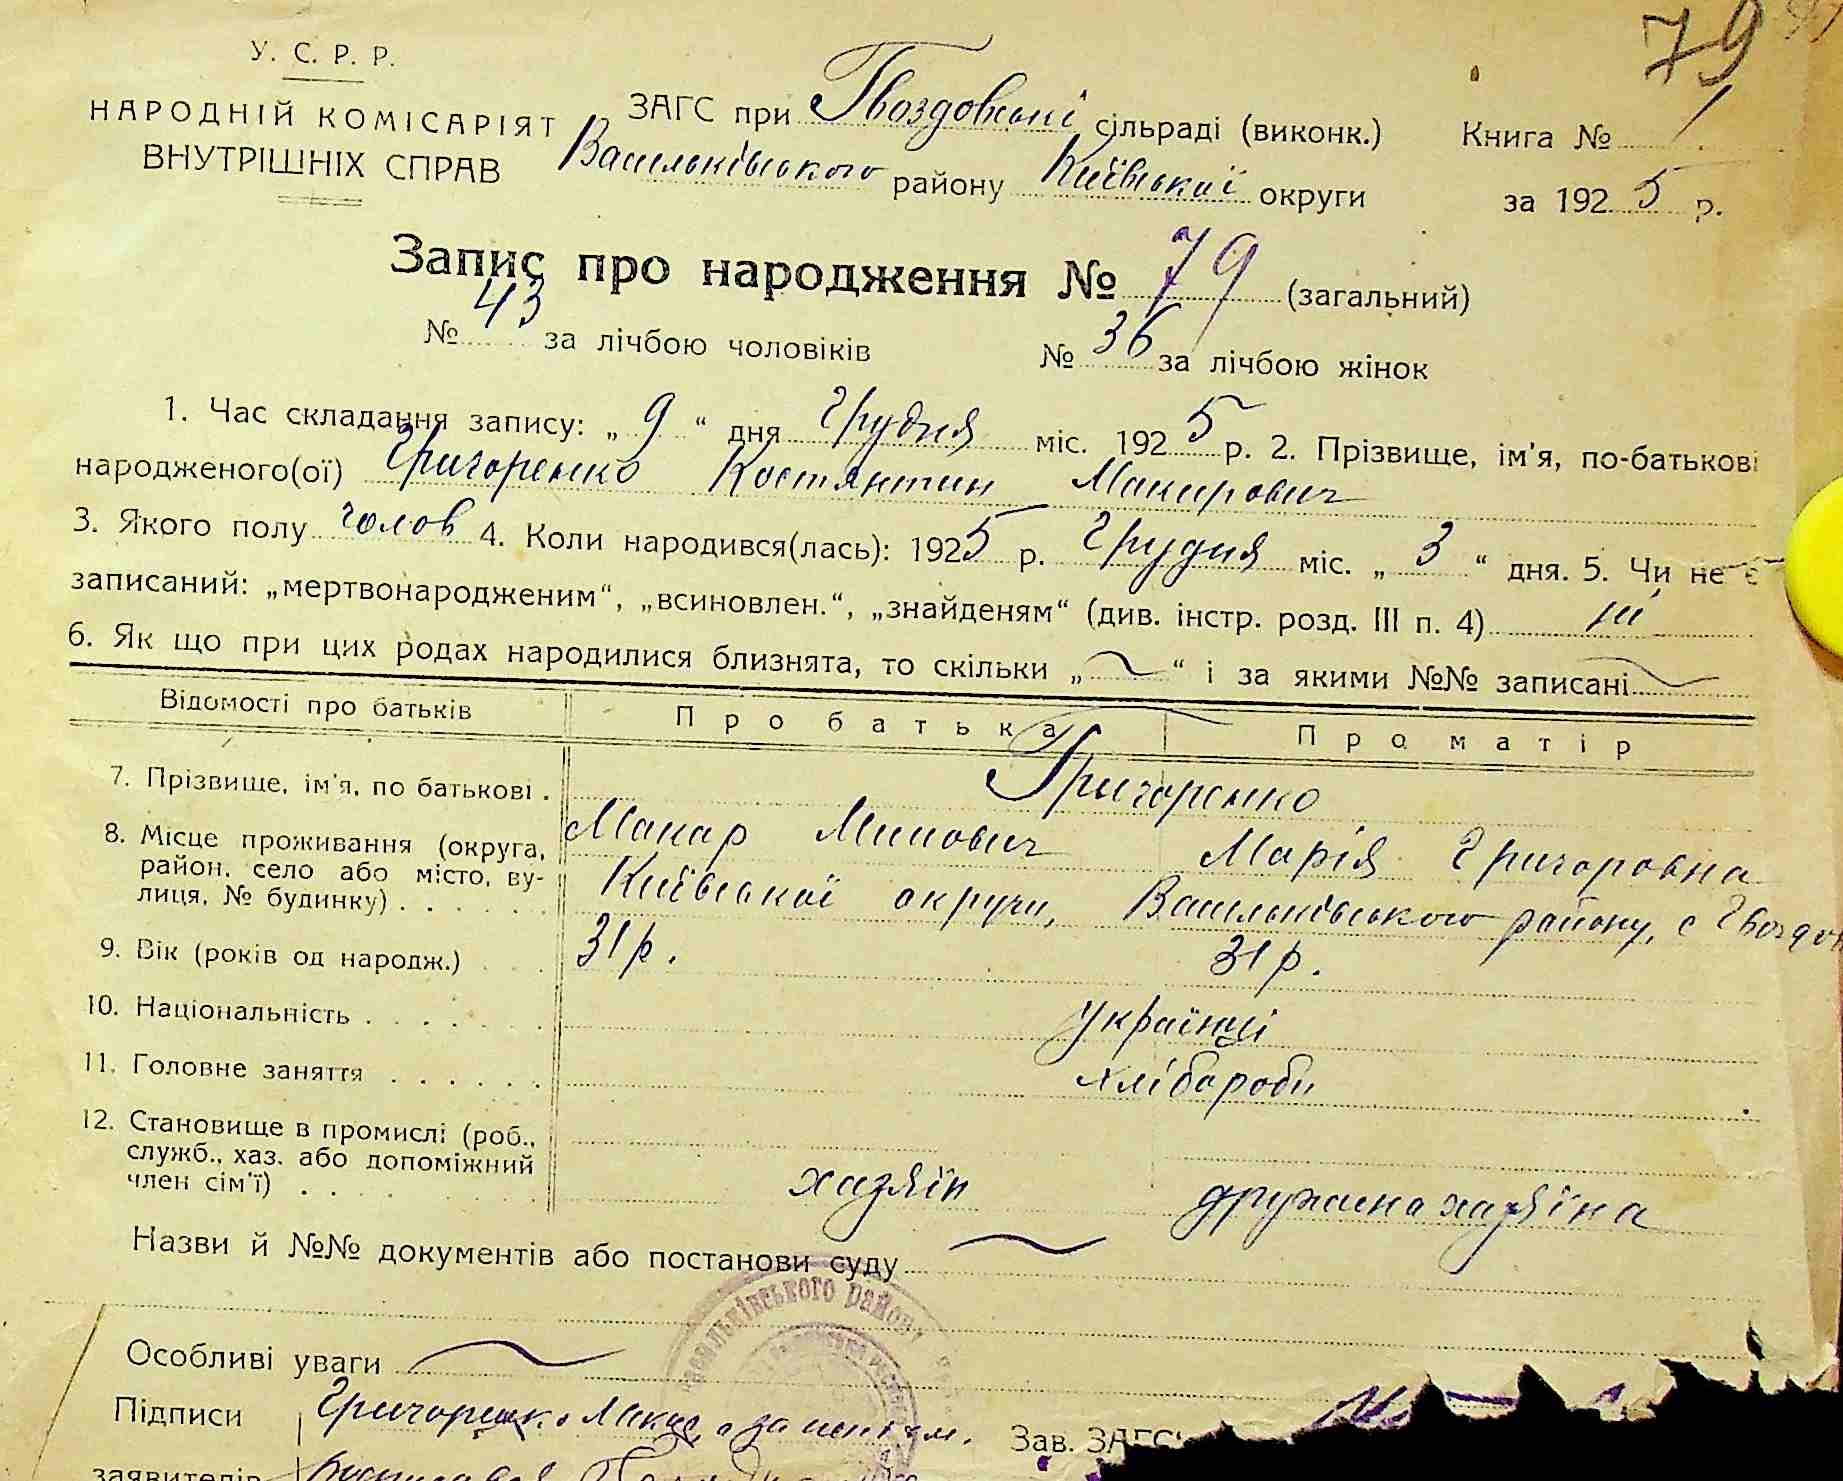 79
У. С. Р. Р.
НАРОДНІЙ КОМІСАРІЯТ
ВНУТРІШНІХ СПРАВ
ЗАГС при Гвоздовській сільраді (виконк.) Книга № 1
Васильківського району Київської округи за 1925 р.
Запис про народження № 79 (загальний)
№ 43 за лічбою чоловіків № 36 за лічбою жінок
1. Час складання запису: „ 9 “ дня Грудня міс. 1925 р. 2. Прізвище, ім'я, по-батькові
народженого(ої) Григоренко Костянтин Макарович
3. Якого полу чолов 4. Коли народився(лась): 1925 р. Грудня міс. „ 3 “ дня. 5. Чи не є
записаний: „мертвонародженим“, „всиновлен.“, „знайденям“ (див. інстр. розд. III п. 4) ні
6. Як що при цих родах народилися близнята, то скільки „ ~ “ і за якими №№ записані ~
Відомості про батьків Про батька Про матір
7. Прізвище, ім'я, по батькові . Григоренко
Макар Минович Марія Григоровна
8. Місце проживання (округа,
район, село або місто, ву-
лиця, № будинку) . . . . . Київської округи, Васильківського району, с
9. Вік (років од народж.) . . . 31 р. 31 р.
10. Національність . . . . . . . українці
11. Головне заняття . . . . . . хлібороби
12. Становище в промислі (роб.,
служб., хаз. або допоміжний
член сім'ї) . . . . . . . . хазяїн дружина хазяїна
Назви й №№ документів або постанови суду ~
Васильківського району
Особливі уваги ~
Підписи Григоренко Макар, а за Зав. ЗАГС
заявителів